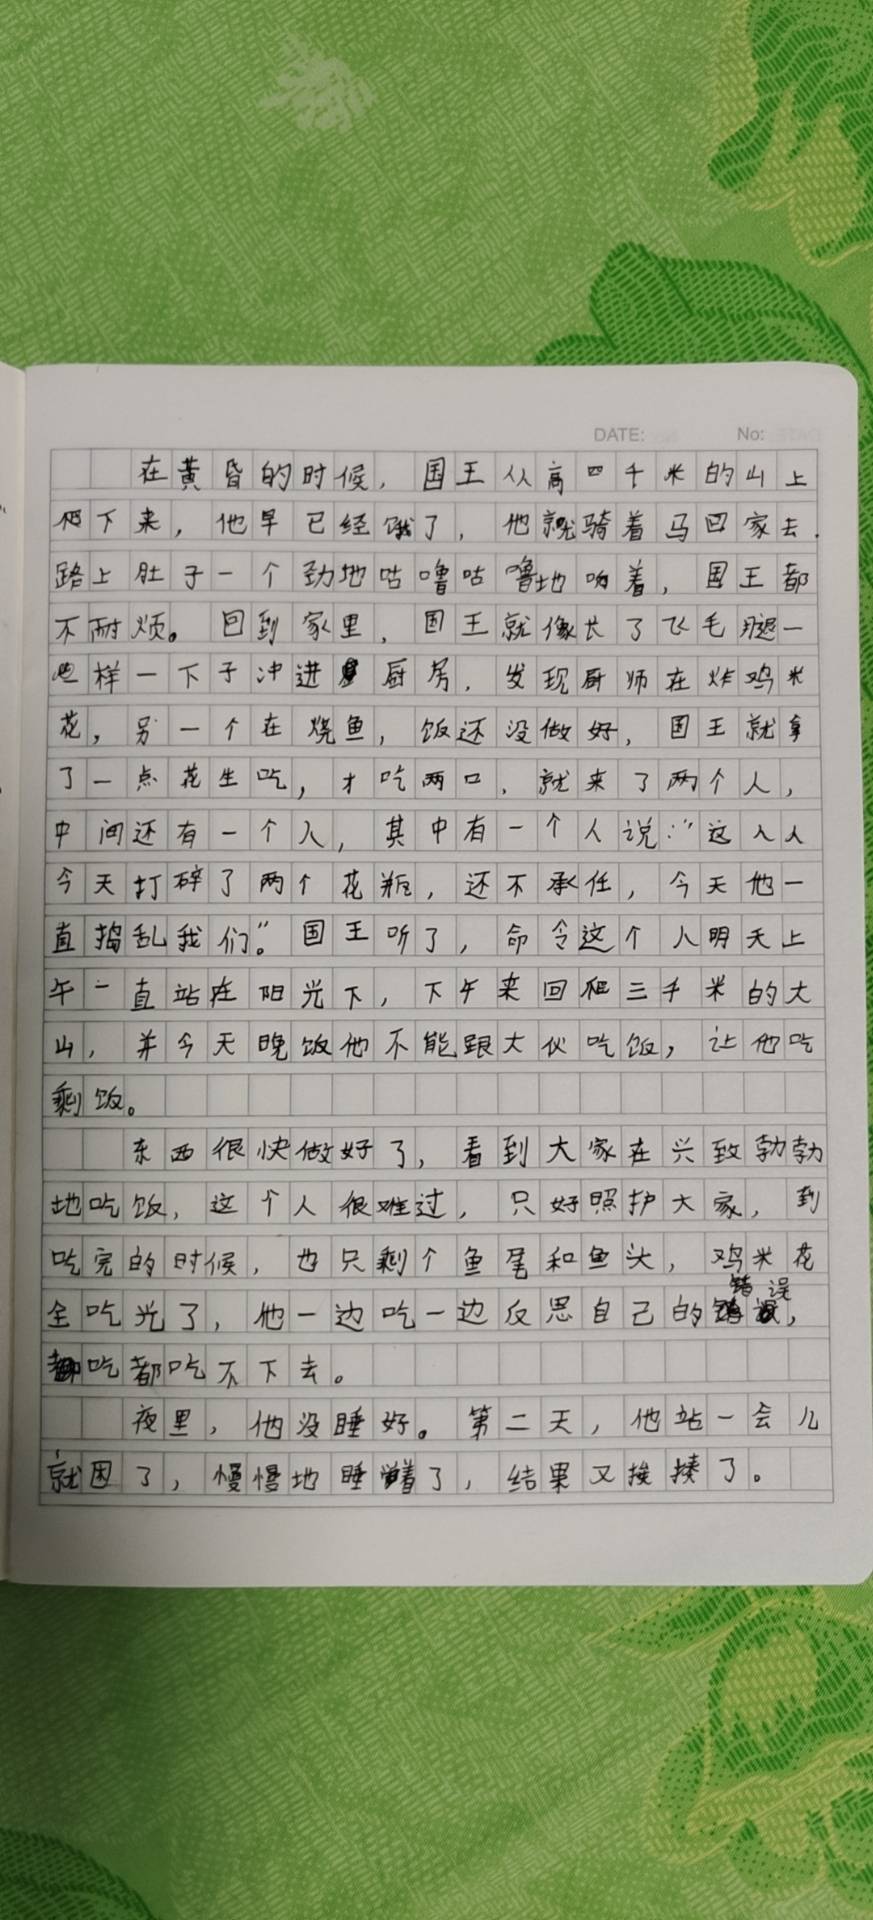 DATE:
No:
在黄昏的时候，国王从高四千米的山上
爬下来，他早已经饿了，他就骑着马回家去.
路上肚子一个劲地咕噜咕噜地响着，国王都
不耐烦。回到家里，国王就像长了飞毛腿一
样一下子冲进厨房，发现厨师在炸鸡米
花，另一个在烧鱼，饭还没做好，国王就拿
了一点花生吃，才吃两口，就来了两个人，
中间还有一个人，其中有一个人说："这人人
今天打碎了两个花瓶，还不承任，今天他一
直捣乱我们"。国王听了，命令这个人明天上
午一直站在阳光下，下午来回爬三千米的大
山，并今天晚饭他不能跟大伙吃饭，让他吃
剩饭。
东西很快做好了，看到大家在兴致勃勃
地吃饭，这个人很难过，只好照护大家，到
吃完的时候，也只剩个鱼尾和鱼头，鸡米花
全吃光了，他一边吃一边反思自己的错误，
吃都吃不下去。
夜里，他没睡好。第二天，他站一会儿
就困了，慢慢地睡着了，结果又挨揍了。